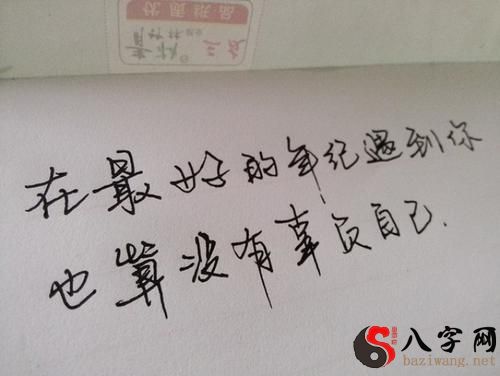 在最好的年纪遇到你
也算没有辜负自己.
八字网
baziwang.net